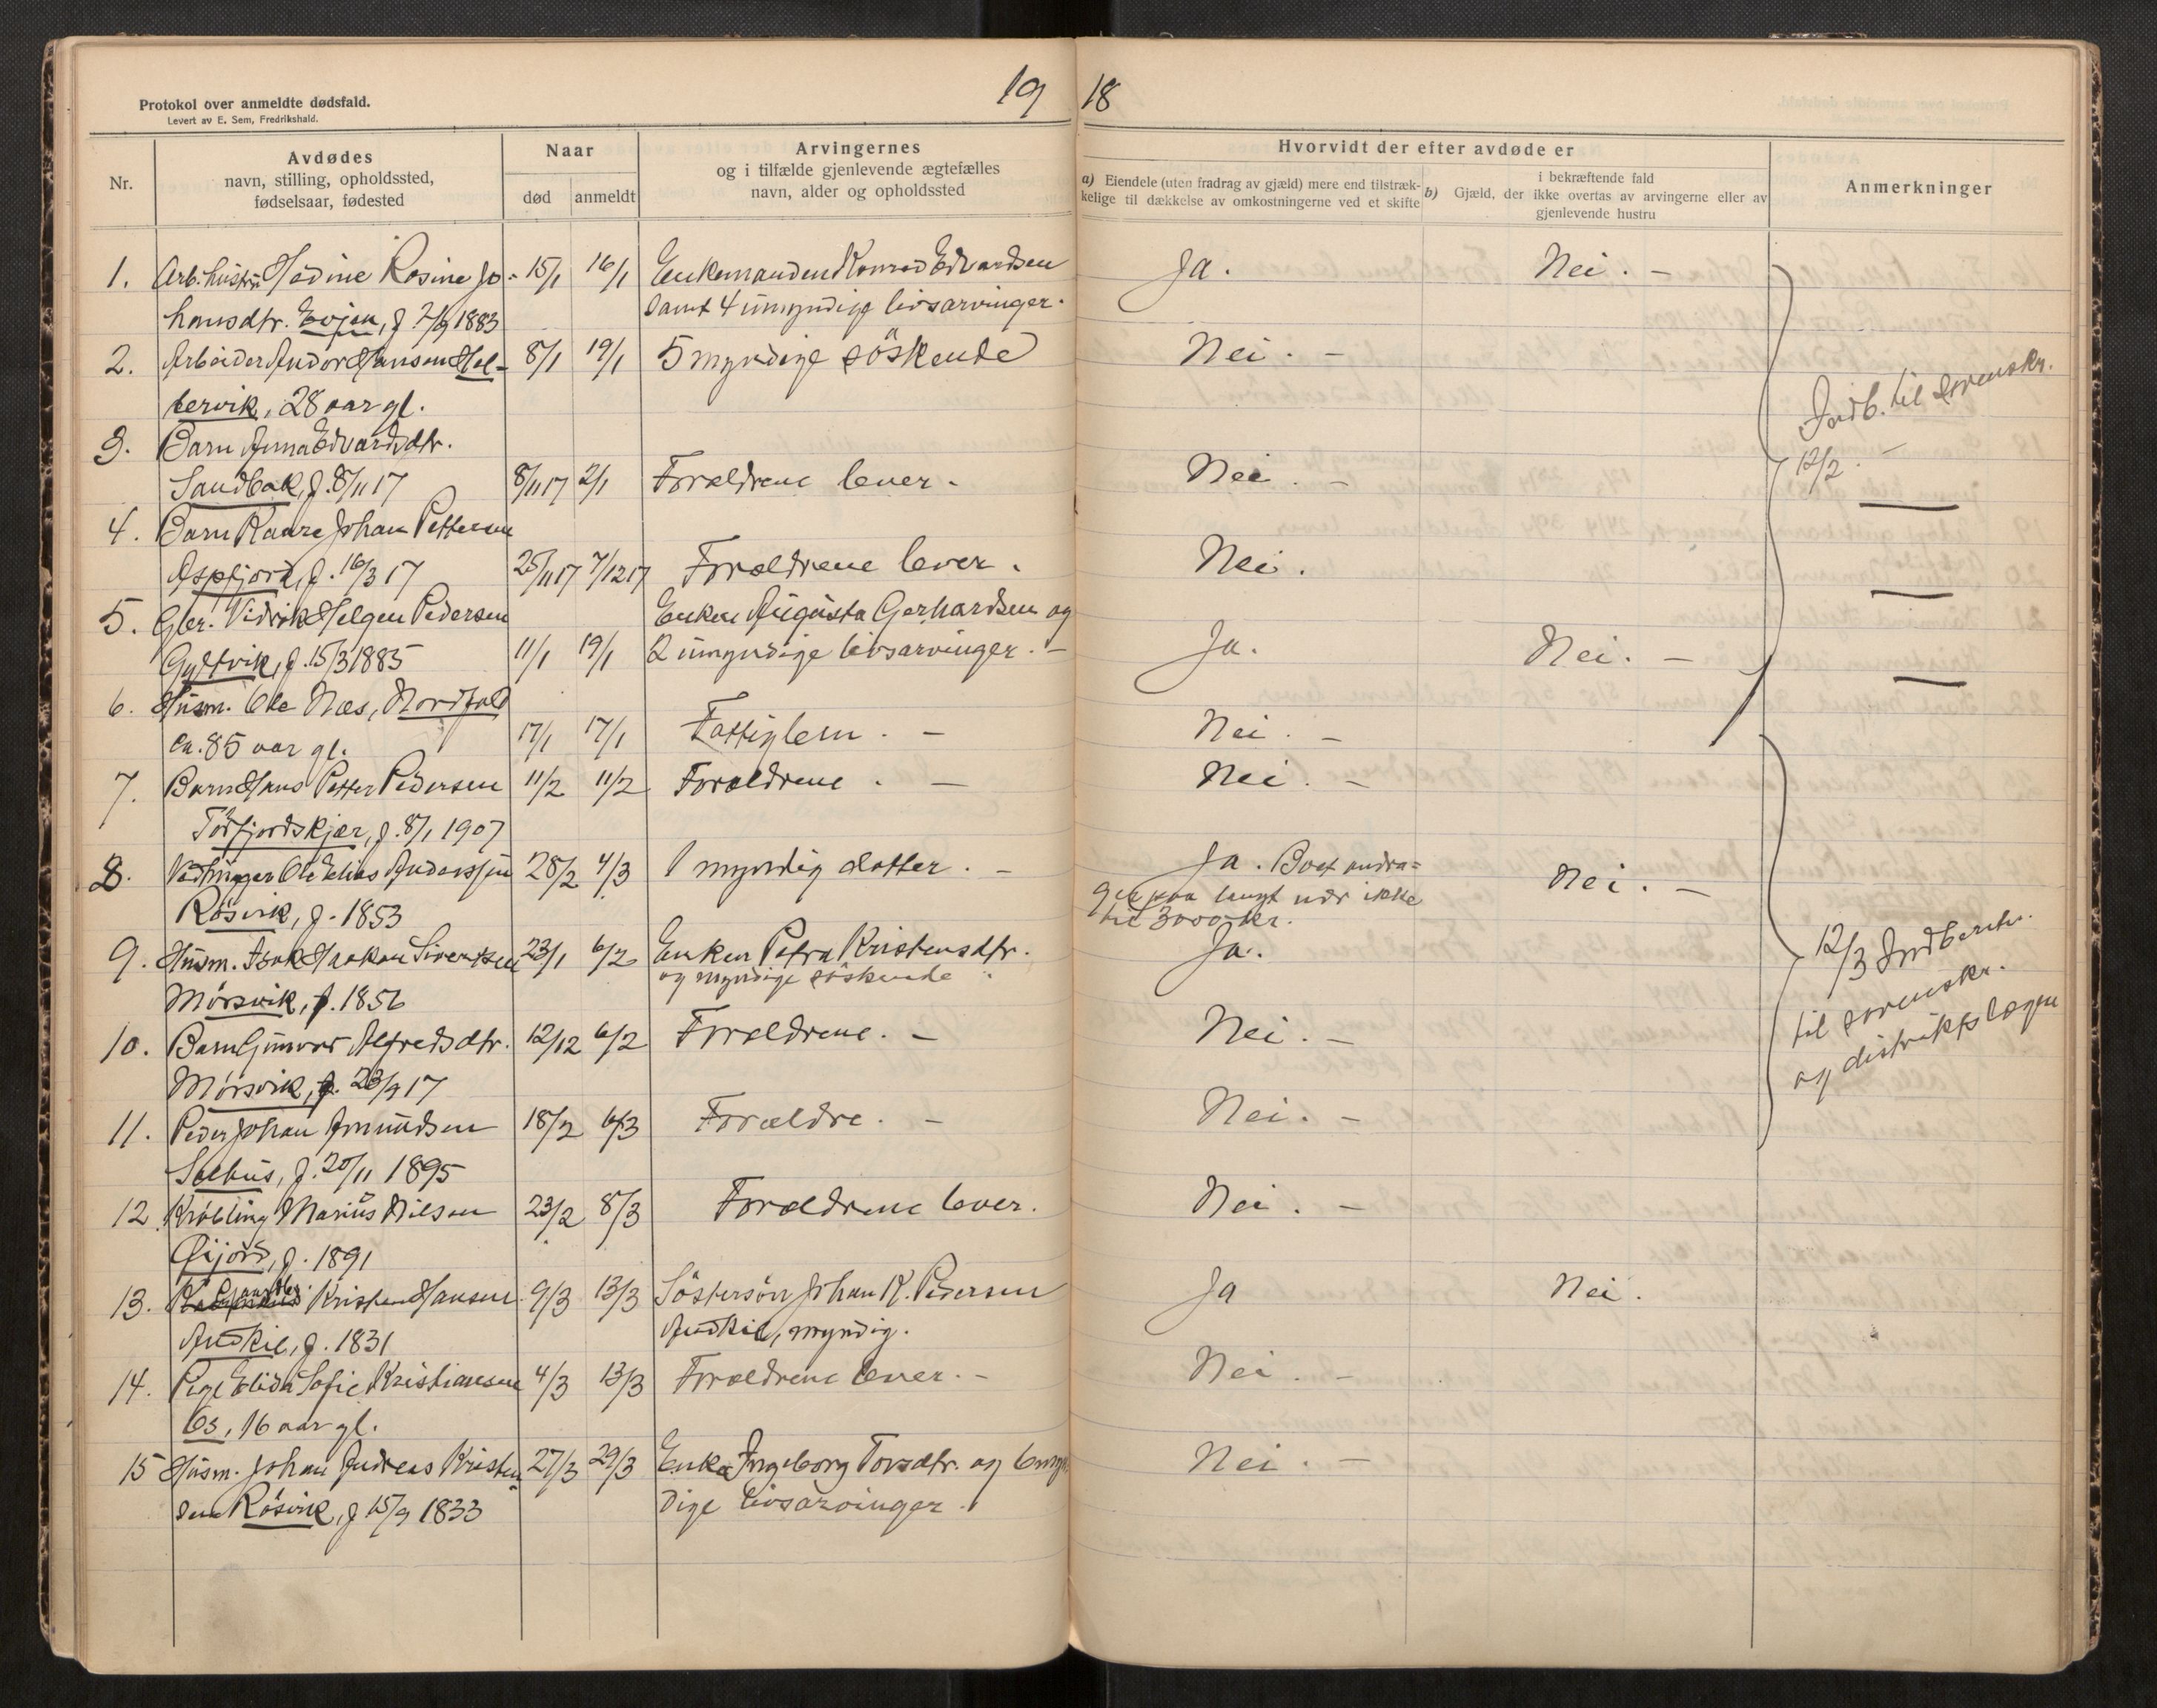 19 18
Protokol over anmeldte dødsfald.
Levert av E. Sem, Fredrikshald.
Nr.
Avdødes
navn, stilling, opholdssted,
fødselsaar, fødested
Naar
død
anmeldt
Arvingernes
og i tilfælde gjenlevende ægtefælles
navn, alder og opholdssted
Hvorvidt der efter avdøde er
a) Eiendele (uten fradrag av gjæld) mere end tilstræk-
kelige til dækkelse av omkostningerne ved et skifte
i bekræftende fald
b) Gjæld, der ikke overtas av arvingerne eller av
gjenlevende hustru
Anmerkninger
1. Arb. hustru Hedine Rosine Jo- 15/1 16/1 Enkemanden Konrad Edvardsen Ja. Nei. -
hansdtr. Evjen, f 7/9 1883 samt 4 umyndige livsarvinger.
2. Arbeider Andor Hansen Hel- 8/1 19/1 5 myndige söskende Nei. -
dervik, 28 aar gl.
Indb. til sorenskr.
12/2. -
3. Barn Anna Edvardsdtr.
Sandbak, f. 8/11 17 8/11 17 2/1 Forældrene lever. Nei. -
4. Barn Kaare Johan Pettersen
Aspfjord, f. 16/3 17 25/11 17 7/12 17 Forældrene lever. Nei.
5. Gbr. Vidrik Helgen Pedersen Enken Augusta Gerhardsen og
Gyltvik, f. 15/3 1885 11/1 19/1 2 umyndige livsarvinger. - Ja. Nei. -
6. Husm. Ole Næs, Nordfold
ca. 85 aar gl. 17/1 17/1 Fattiglem. - Nei. -
7. Barn Hans Petter Pedersen 11/2 11/2 Forældrene. - Nei. -
Törfjordskjær, f. 8/1 1907
8. Ole Elias Anderssen 28/2 4/3 1 myndig datter. - Ja. Boet andra- Nei. -
Rösvik, f. 1853 ger paa langt nær ikke
til 3000 kr.
9. Husm. Isak Haakon Sivertsen 23/1 6/2 Enken Petra Kristensdtr. Ja.
og myndige söskende
Mörsvik, f. 1856
12/3 Indberett.
til sorenskr.
og distriktslægen
10. Barn Gunvor Alfredsdtr. 12/12 6/2 Forældrene. - Nei. -
Mörsvik, f. 23/9 17
11. Peder Johan Amundsen 18/2 6/3 Forældre. - Nei. -
Sæthus, f. 20/11 1895
12. Kröbling Marius Nilsen 23/2 8/3 Forældrene lever. Nei. -
Öijord, f. 1891
13. Kristen Hansen 9/3 13/3 Söstersön Johan K. Pedersen Ja Nei.
Andkil, f. 1831 Andkil, myndig.
14. Pige Elida Sofie Kristiansen 4/3 13/3 Forældrene lever. - Nei. -
Os, 16 aar gl.
15 Husm. Johan Andreas Kristen- 27/3 29/3 Enke Ingeborg Torsdtr. og 6 myn- Nei. -
sen Rösvik, f 15/9 1833 dige livsarvinger.